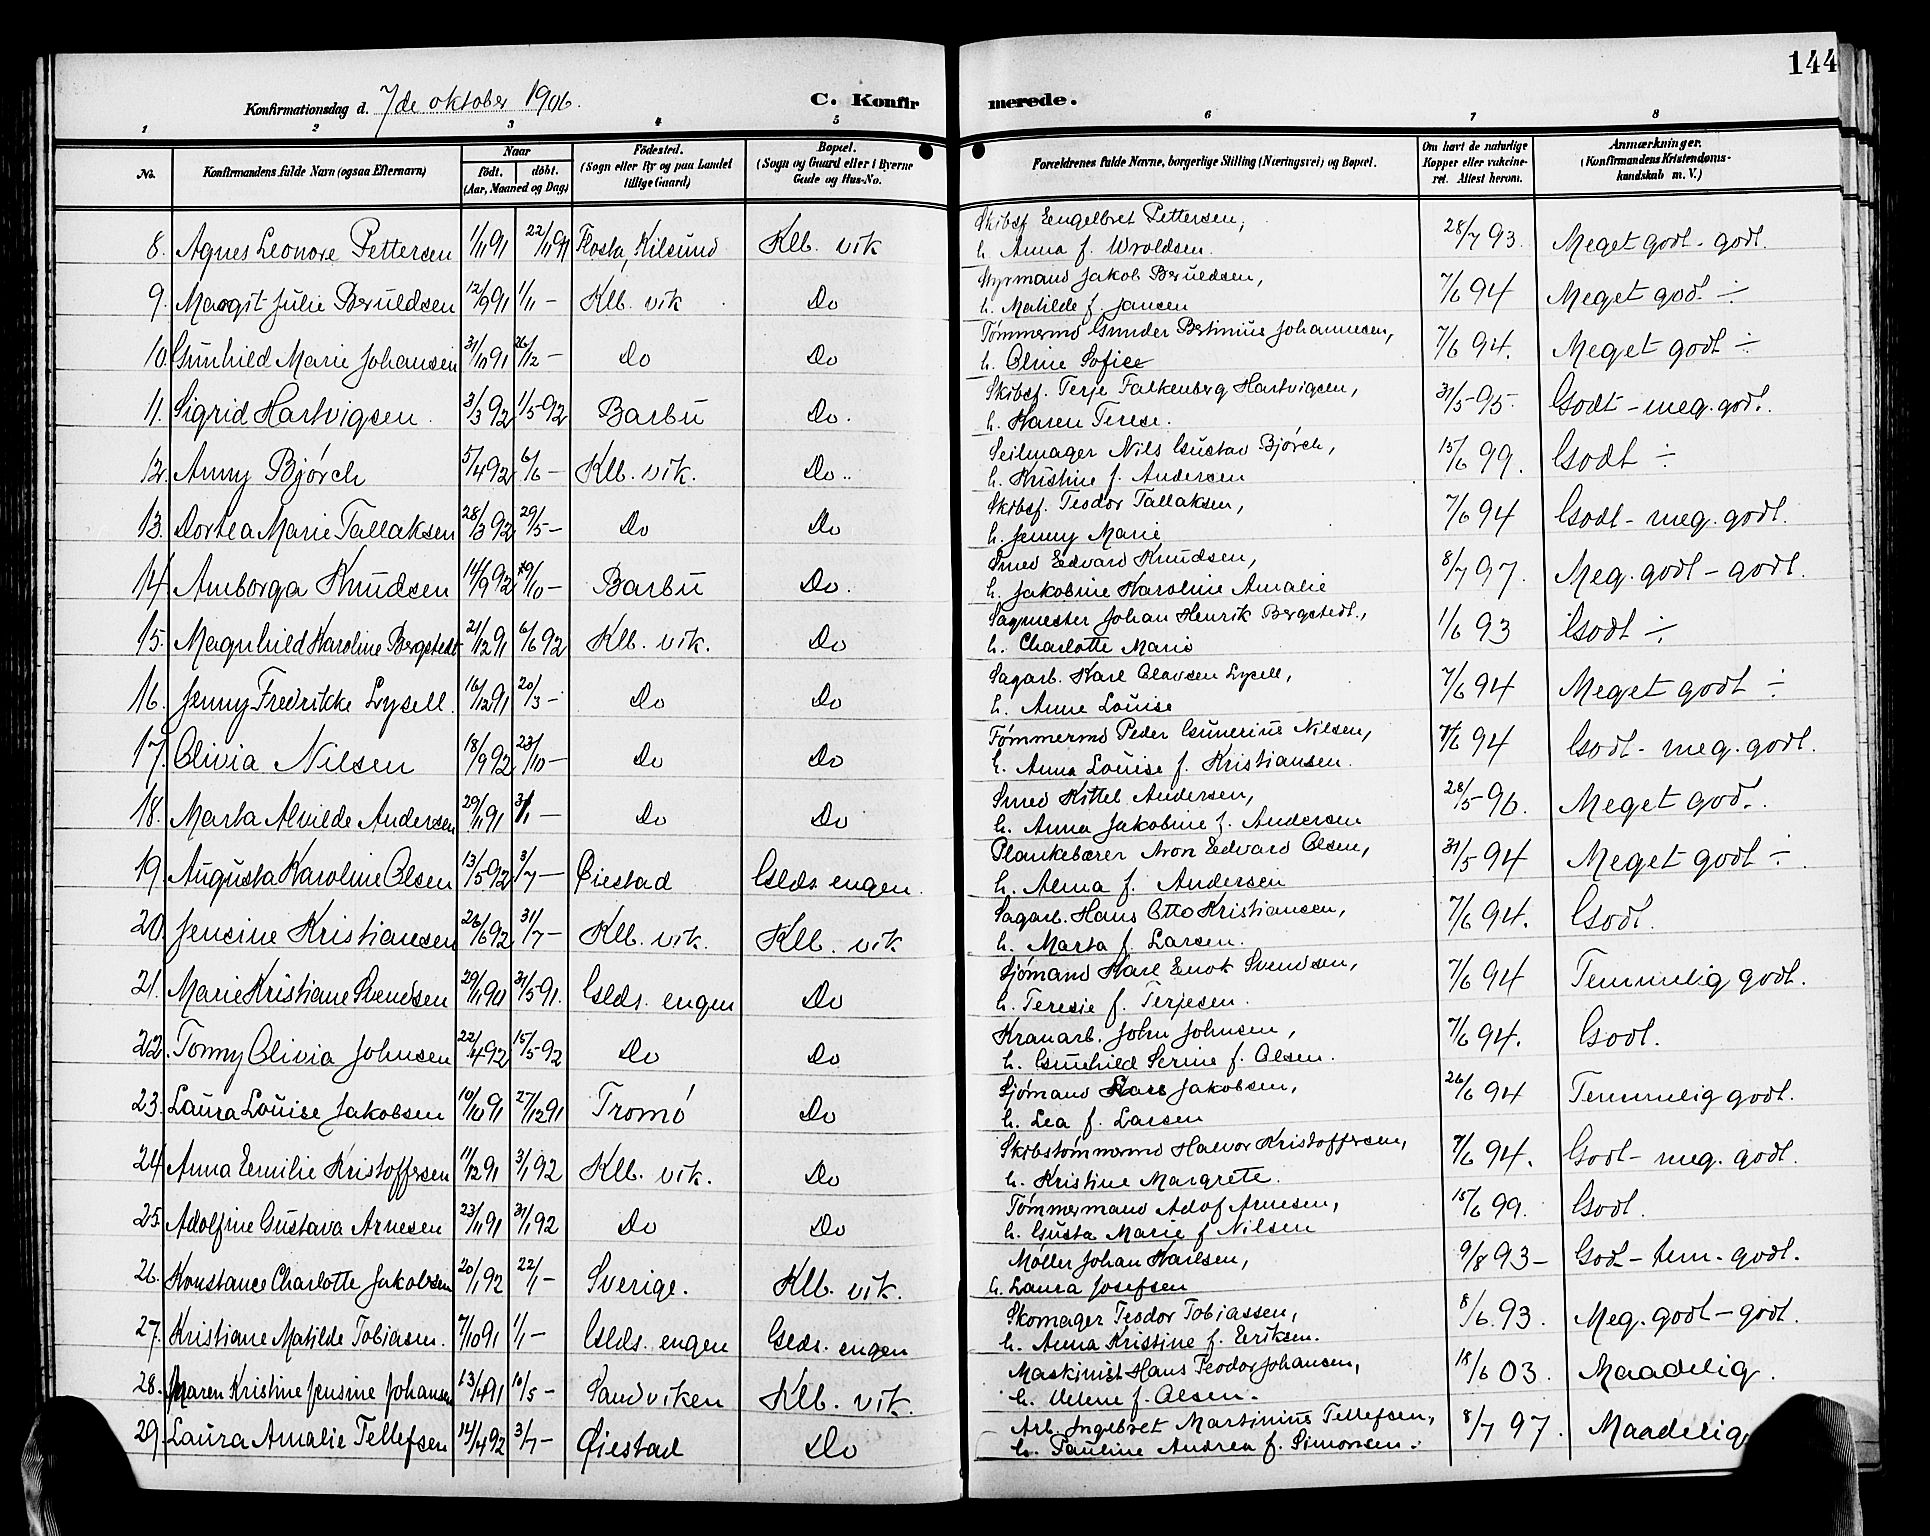 144
Konfirmationsdag d. 7de oktober 1906. C. Konfirmerede.
1 2 3 4 5 6 7 8
No. Konfirmandens fulde Navn (ogsaa Efternavn) Naar født. døbt. (Aar, Maaned og Dag) Fødested. (Sogn eller By og paa Landet tillige Gaard) Bopæl. (Sogn og Gaard eller i Byerne Gade og Hus-No. Forældrenes fulde Navne, borgerlige Stilling (Næringsvei) og Bopæl. Om havt de naturlige Kopper eller vakcineret. Attest herom. Anmærkninger. (Konfirmandens Kristendomskundskab m. V.)
8. Agnes Leonore Pettersen 1/11 91 22/11 91 Flosta, Kilsund Klb. vik Skibsf. Eengelbret Pettersen, 28/7 93. Meget godt - godt.
h. Anna f. Wroldsen.
9. Margit Julie Beruldsen 12/9 91 1/11 - Klb. vik Do Styrmand Jakob Beruldsen, 7/6 94 Meget godt ÷
h. Matilde f. Jansen
10. Gunhild Marie Johansen 31/10 91 26/12 - Do Do Tømmermd Gunder Bertinius Johannesen, 7/6 94. Meget godt ÷
h. Oline Sofie
11. Sigrid Hartvigsen. 3/3 92 1/5 - 92 Barbu Do. Skibsf. Terje Falkenberg Hartvigsen, 31/5 - 95. Godt - meg. godt.
h. Karen Terese.
12. Anny Bjørch 5/4 92 6/6 - Klb. vik. Do.. Seilmager Nils Gustav Bjørch, 15/6 99. Godt ÷
h. Kristine f. Andersen
13. Dortea Marie Tallaksen 28/3 92 29/5 - Do Do Skibsf. Teodor Tallaksen, 7/6 94 Godt - meg. godt.
h. Jenny Marie
14. Amborga Knudsen 14/9 92 9/10 - Barbu Do. Smed Edvard Knudsen, 8/7 97. Meg. godt - godt.
h. Jakobine Karoline Amalie
15. Magnhild Karoline Bergstedt 21/12 91 6/6 92 Klb. vik. Do Sagmester Johan Henrik Bergstedt., 1/6 93 Godt ÷
h. Charlotte Marie
16. Jenny Fredrikke Lysell. 16/12 91 20/3 - Do Do Sagarb. Karl Olavsen Lysell, 7/6 94 Meget godt ÷
h. Anne Louise
17. Olivia Nilsen 18/9 92 23/10 - Do Do Tømmermd Peder Gunerius Nilsen, 7/6 94 Godt - meg. godt.
h. Anna Louise f. Kristiansen.
18. Marta Alvilde Andersen 29/11 91 3/1 - Do Do Smed Kittel Andersen, 28/5 - 96. Meget god.
h. Anna Jakobine f. Andersen
19. Augusta Karoline Olsen 13/5 92 3/7 - Øiestad Gslds. engen. Plankebærer Aron Edvard Olsen, 31/5 94 Meget godt ÷
h. Alma f. Andersen
20. Jensine Kristiansen 26/6 92 31/7 - Klb. vik. Klb. vik Sagarb. Hans Otto Kristiansen, 7/6 94. Godt.
h. Marta f. Larsen.
21. Marie Kristiane Svendsen 29/11 90 31/5 91. Gslds. engen Do Sjømand Karl Enok Svendsen, 7/6 94 Temmelig godt.
h. Teresie f. Terjesen.
22. Tonny Olivia Johnsen 22/4 92 15/5 - 92 Do Do Kranarb. John Johnsen, 7/6 94. Godt.
h. Gunhild Serine f. Olsen.
23. Laura Louise Jakobsen 10/10 91 27/12 91 Tromø Do Sjømand Lars Jakobsen, 26/6 94 Temmelig godt.
h. Lea f. Larsen
24. Anna Eemilie Kristoffersen 11/12 91 3/1 92 Klb. vik. Do Skibstømmermd Halvor Kristoffersen, 7/6 94. Godt - meg. godt.
h. Kristine Margrete.
25. Adolfine Gustava Arnesen 23/11 91 31/1 92 Do Do Tømmermand Adof Arnesen, 15/6 99. Godt.
h. Gusta Marie f Nilsen
26. Konstance Charlotte Jakobsen 20/1 92 22/1 - Sverige. Klb. vik. Møller Johan Karlsen, 9/8 93 - God - tem. godt.
h. Laura Josefsen
27. Kristiane Matilde Tobiasen. 7/10 91 1/1 - Gslds. engen Gslds. engen Skomager Teodor Tobiassen, 8/6. 93. Meg. godt - godt.
h. Anna Kristine f. Eeriksen.
28. Maren Kristine Jensine Johansen 13/4 91 10/5 - Sandviken Klb. vik. Maskinist Hans Teodor Johansen, 18/6 03. Maadelig.
h. Helene f. Olsen.
29. Laura Amalie Tellefsen 14/4 92 3/7 - Øiestad Do Arb. Ingebret Martinius Tellefsen, 8/7 97. Maadelig
h. Pauline Andrea f. Simonsen.